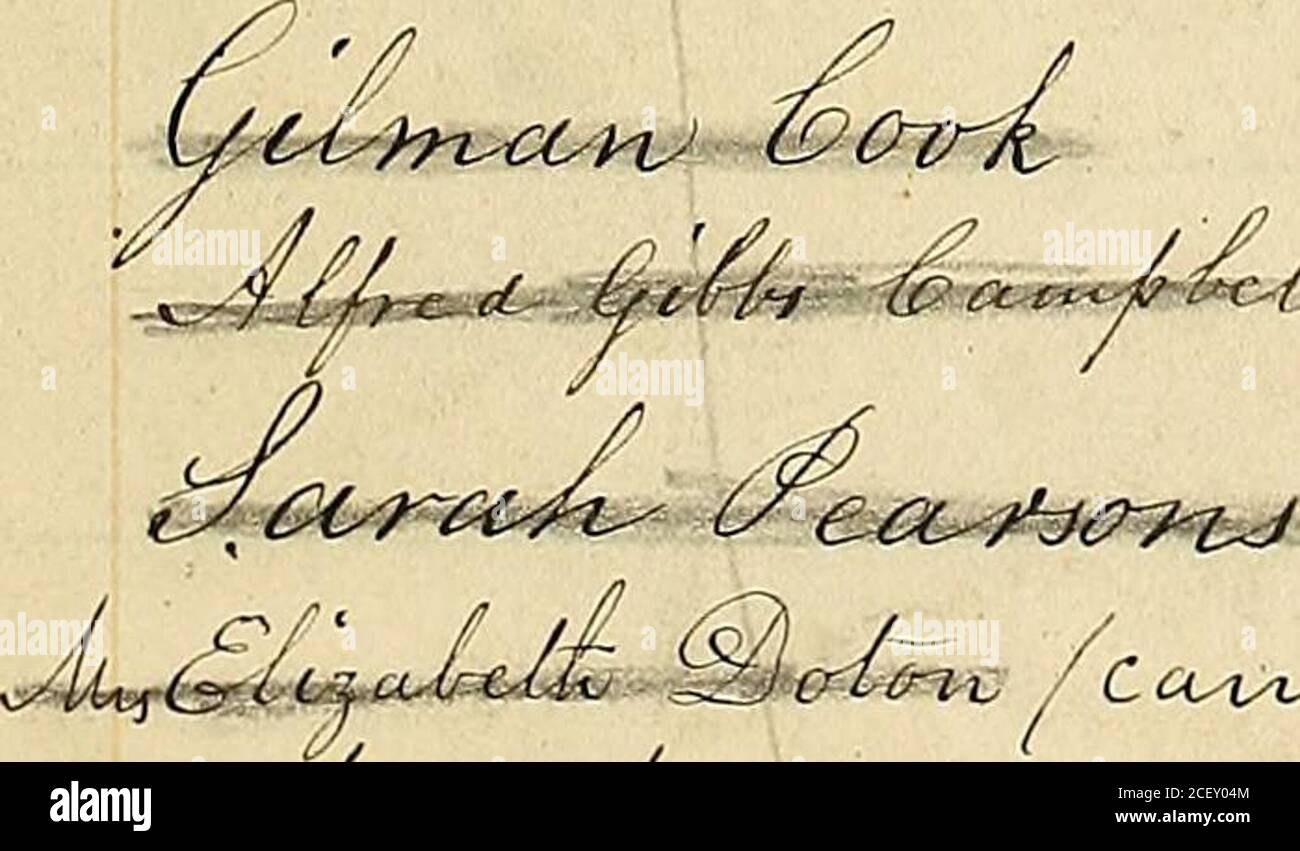 Gilman Cook
Alfred Gibbs Campbel
Sarah Pearsons
Mrs Elizabeth Doton (can
alamy
Image ID: 2CEY04M
www.alamy.com